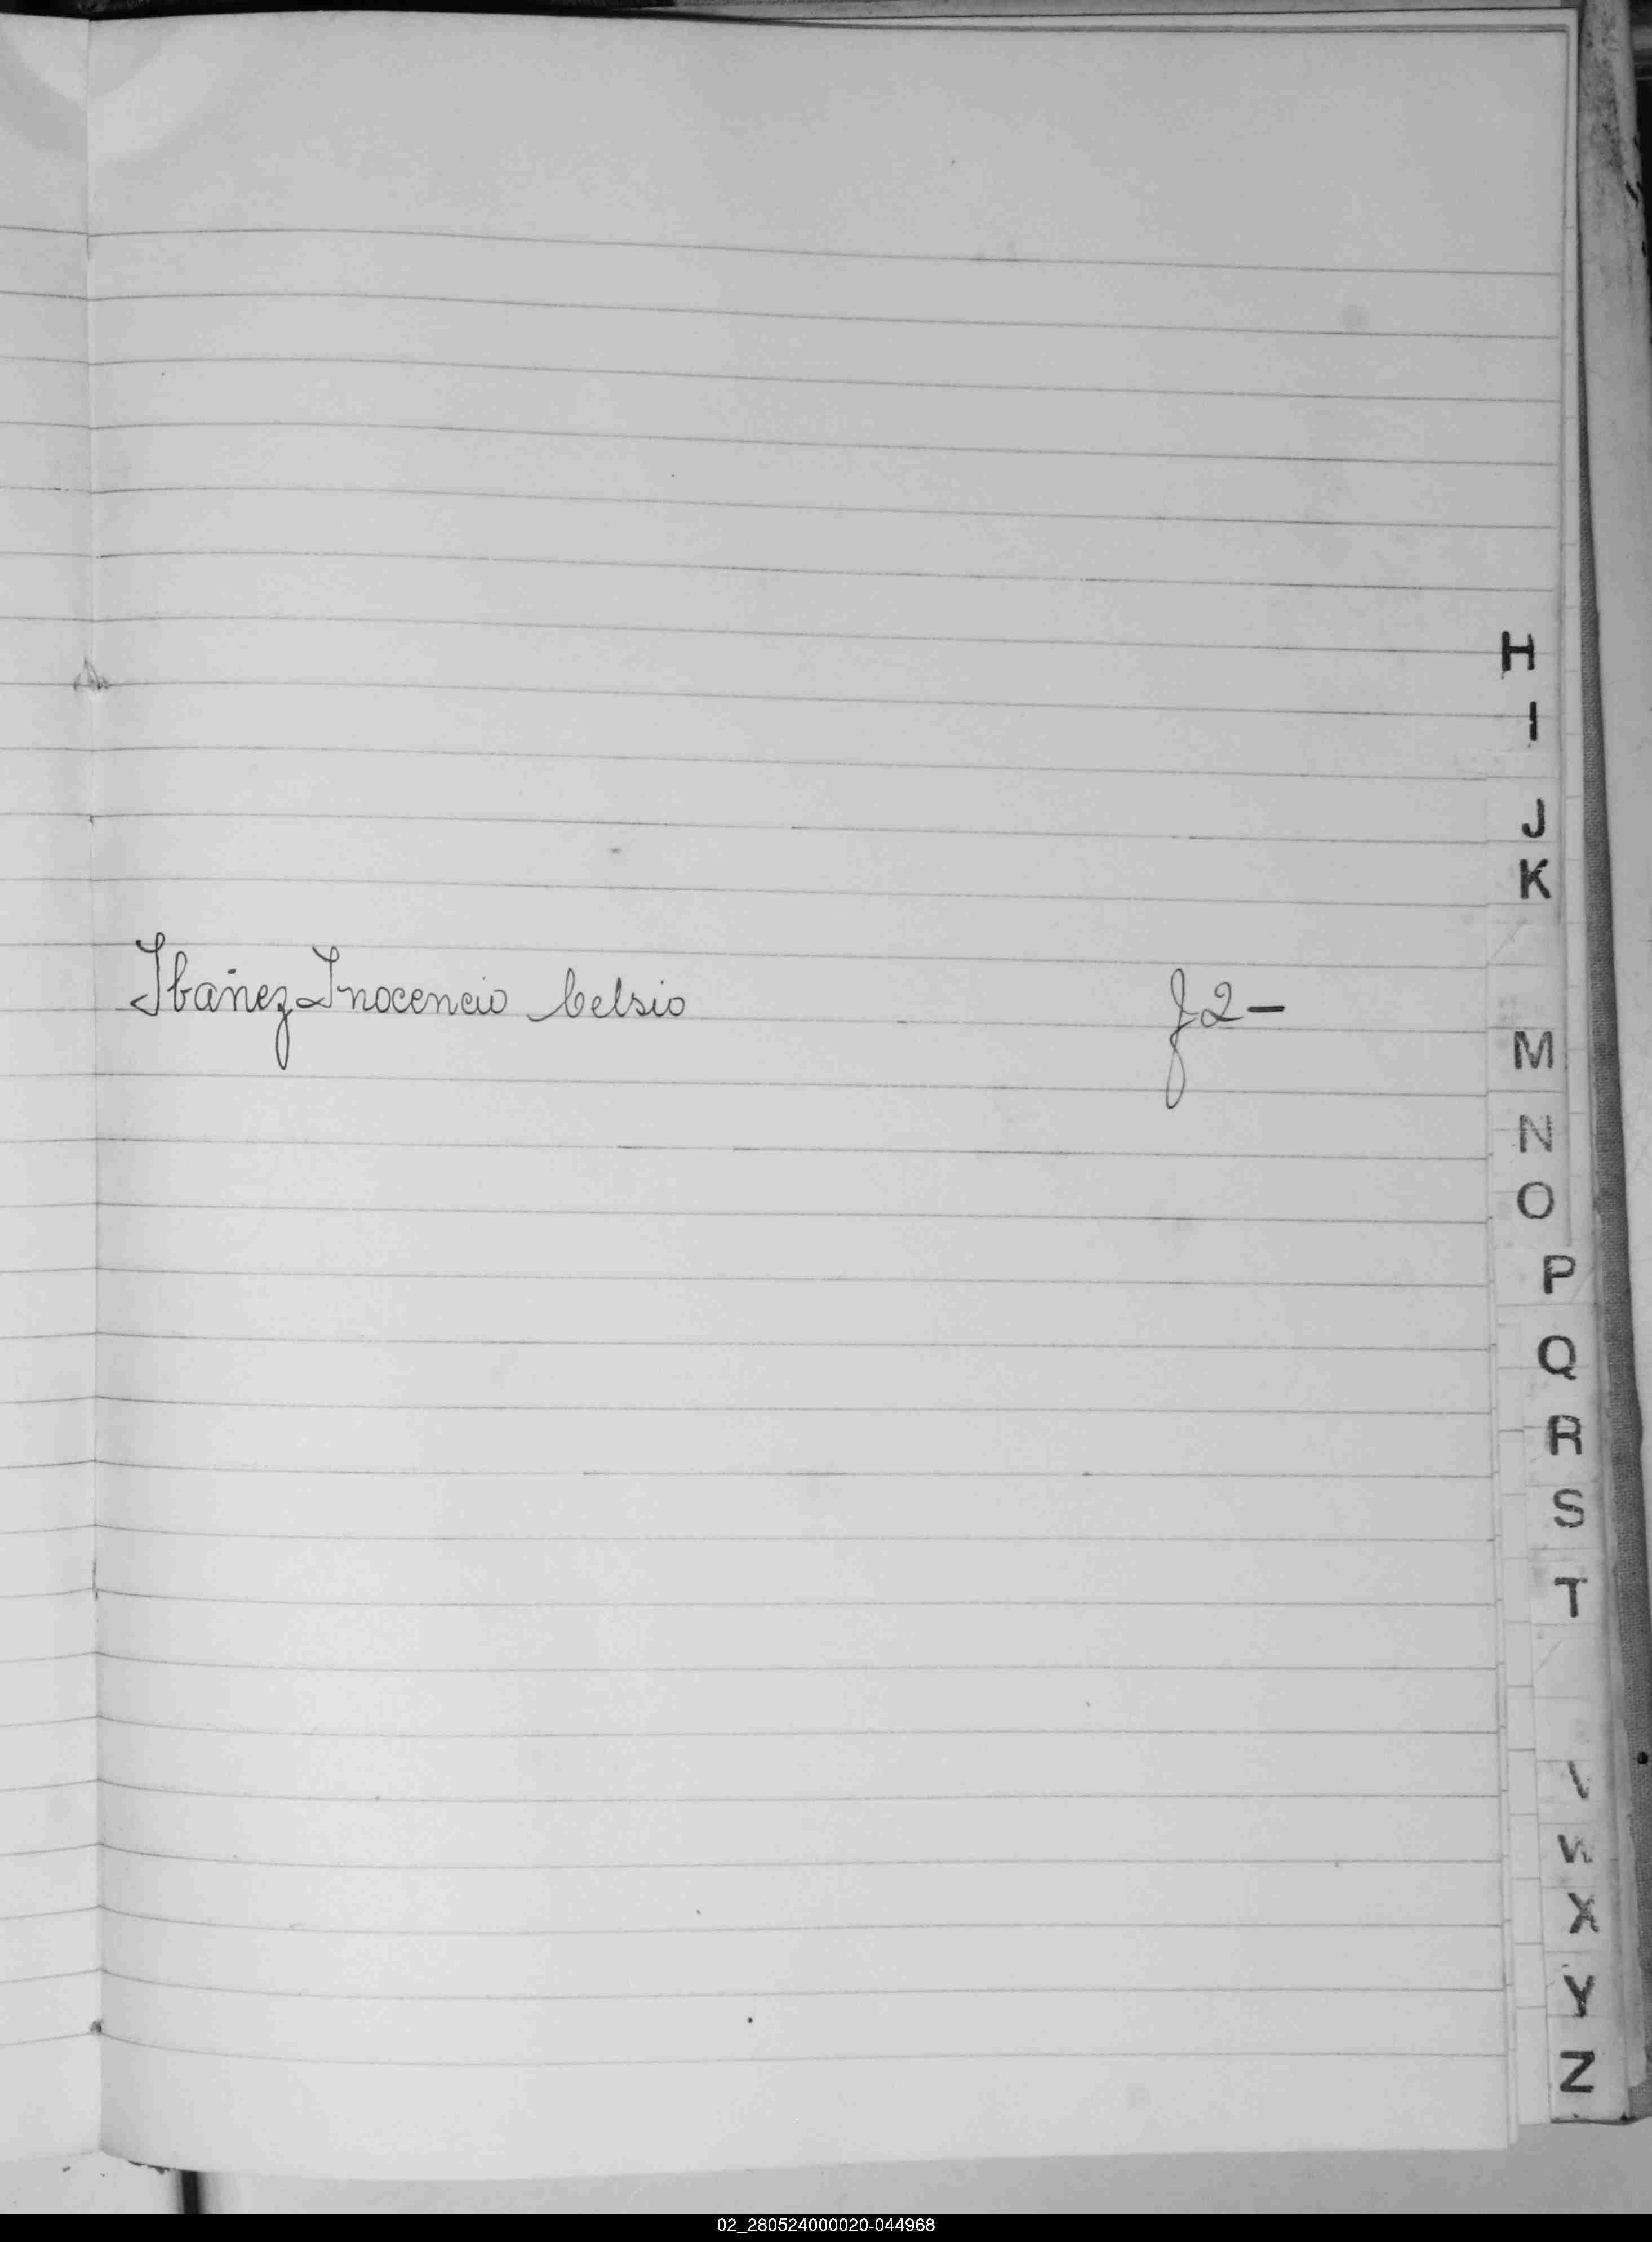 Ibañez Inocencio Celsio f 2-
H
I
J
K
M
N
O
P
Q
R
S
T
V
W
X
Y
Z
02_280524000020-044968